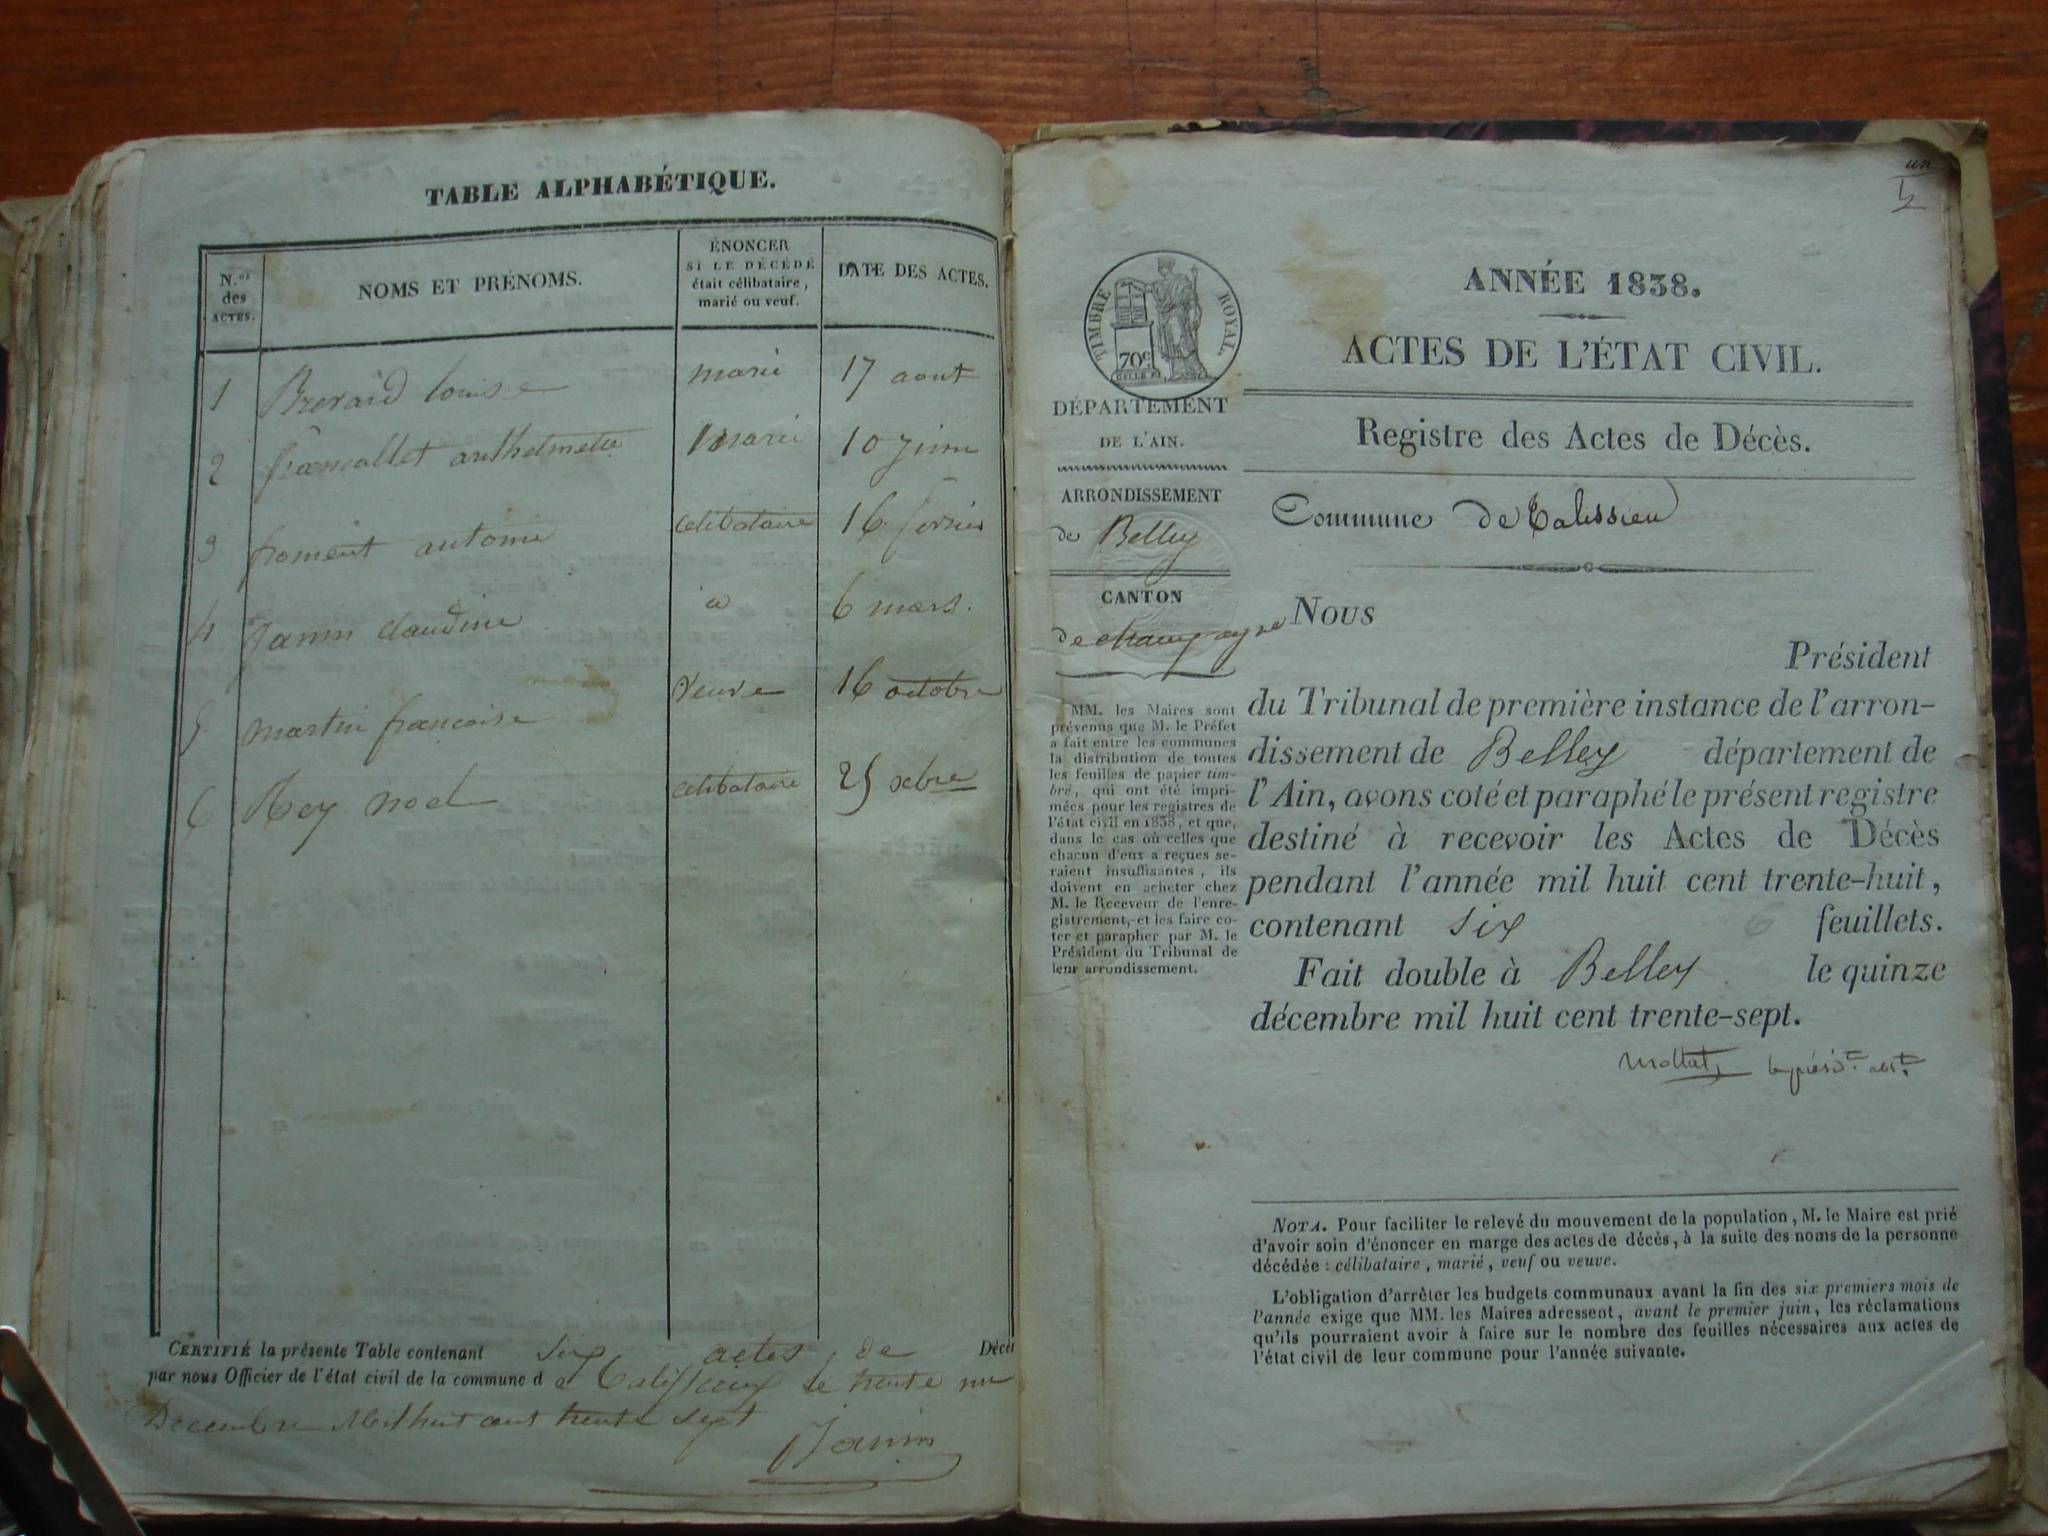 TABLE ALPHABÉTIQUE.
N.os des ACTES.
NOMS ET PRÉNOMS.
ÉNONCER
SI LE DÉCÉDÉ
était célibataire,
marié ou veuf.
DATE DES ACTES.
1 Brerard louise marié 17 aout
2 francallet anthelmette marié 10 juin
3 froment antoine celibataire 16 fevrier
4 Janin claudine 6 mars.
5 martin francoise veuve 16 octobre
6 Rey noel celibataire 25 xbre
CERTIFIÉ la présente Table contenant six actes de Décès
par nous Officier de l'état civil de la commune d e Talissieu le trente un
Decembre Mil huit cent trente sept
Janin
un
ANNÉE 1838.
ACTES DE L'ÉTAT CIVIL.
TIMBRE ROYAL.
70c
DÉPARTEMENT
DE L'AIN.
ARRONDISSEMENT
de Belley
CANTON
de champagne
MM. les Maires sont
prévenus que M. le Préfet
a fait entre les communes
la distribution de toutes
les feuilles de papier tim-
bré, qui ont été impri-
mées pour les registres de
l'état civil en 1838, et que,
dans le cas où celles que
chacun d'eux a reçues se-
raient insuffisantes, ils
doivent en acheter chez
M. le Receveur de l'enre-
gistrement, et les faire co-
ter et parapher par M. le
Président du Tribunal de
leur arrondissement.
Registre des Actes de Décès.
Commune de Talissieu
Nous
Président
du Tribunal de première instance de l'arron-
dissement de Belley département de
l'Ain, avons coté et paraphé le présent registre
destiné à recevoir les Actes de Décès
pendant l'année mil huit cent trente-huit,
contenant six 6 feuillets.
Fait double à Belley le quinze
décembre mil huit cent trente-sept.
Mollat,
NOTA. Pour faciliter le relevé du mouvement de la population, M. le Maire est prié
d'avoir soin d'énoncer en marge des actes de décès, à la suite des noms de la personne
décédée : célibataire, marié, veuf ou veuve.
L'obligation d'arrêter les budgets communaux avant la fin des six premiers mois de
l'année exige que MM. les Maires adressent, avant le premier juin, les réclamations
qu'ils pourraient avoir à faire sur le nombre des feuilles nécessaires aux actes de
l'état civil de leur commune pour l'année suivante.